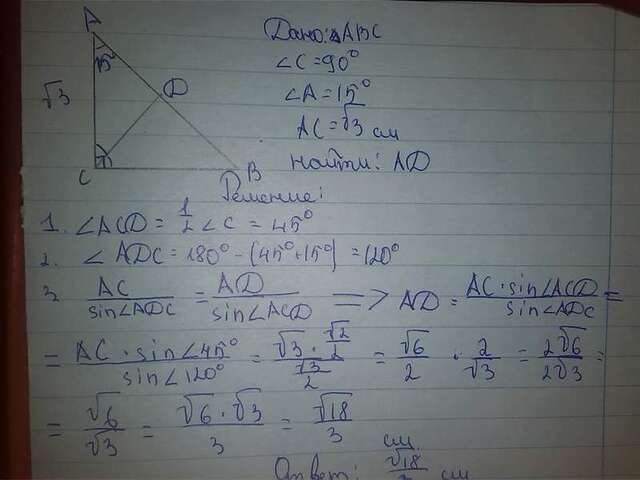 A
15°
√3
D
C
B
Дано: ΔABC
∠C=90°
∠A=15°
AC=√3 см
Найти: AD
Решение:
1. ∠ACD = 1/2 ∠C = 45°
2. ∠ADC = 180° - (45°+15°) = 120°
3. AC/sin∠ADC = AD/sin∠ACD => AD = AC·sin∠ACD/sin∠ADC =
= AC·sin∠45°/sin∠120° = (√3·√2/2)/(√3/2) = √6/2 · 2/√3 = 2√6/2√3 =
= √6/√3 = √6·√3/3 = √18/3 см
Ответ: √18/3 см